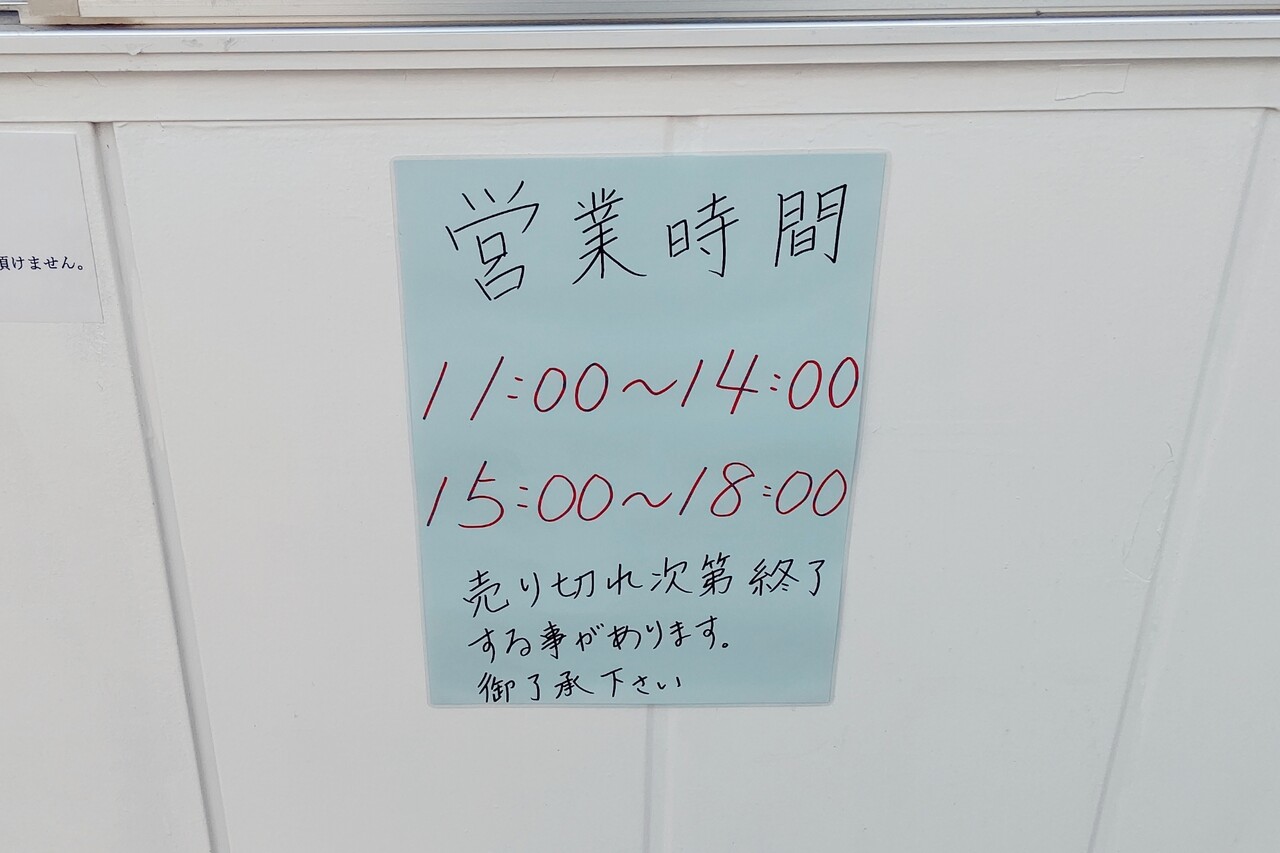 頂けません。
営業時間
11:00〜14:00
15:00〜18:00
売り切れ次第終了
する事があります。
御了承下さい